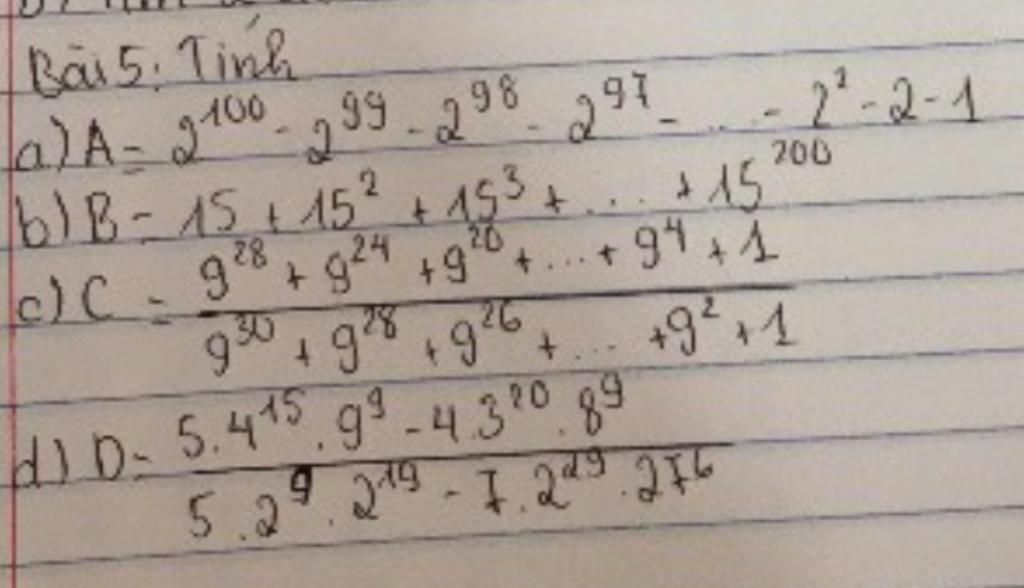 Bài 5: Tính
a) A = 2^100 - 2^99 - 2^98 - 2^97 - ... - 2^2 - 2 - 1
b) B = 15 + 15^2 + 15^3 + ... + 15^200
9^28 + 9^24 + 9^20 + ... + 9^4 + 1
c) C =
9^30 + 9^28 + 9^26 + ... + 9^2 + 1
5.4^15.9^9 - 4.3^20.8^9
d) D =
5.2^9.2^19 - 7.2^29.27^6